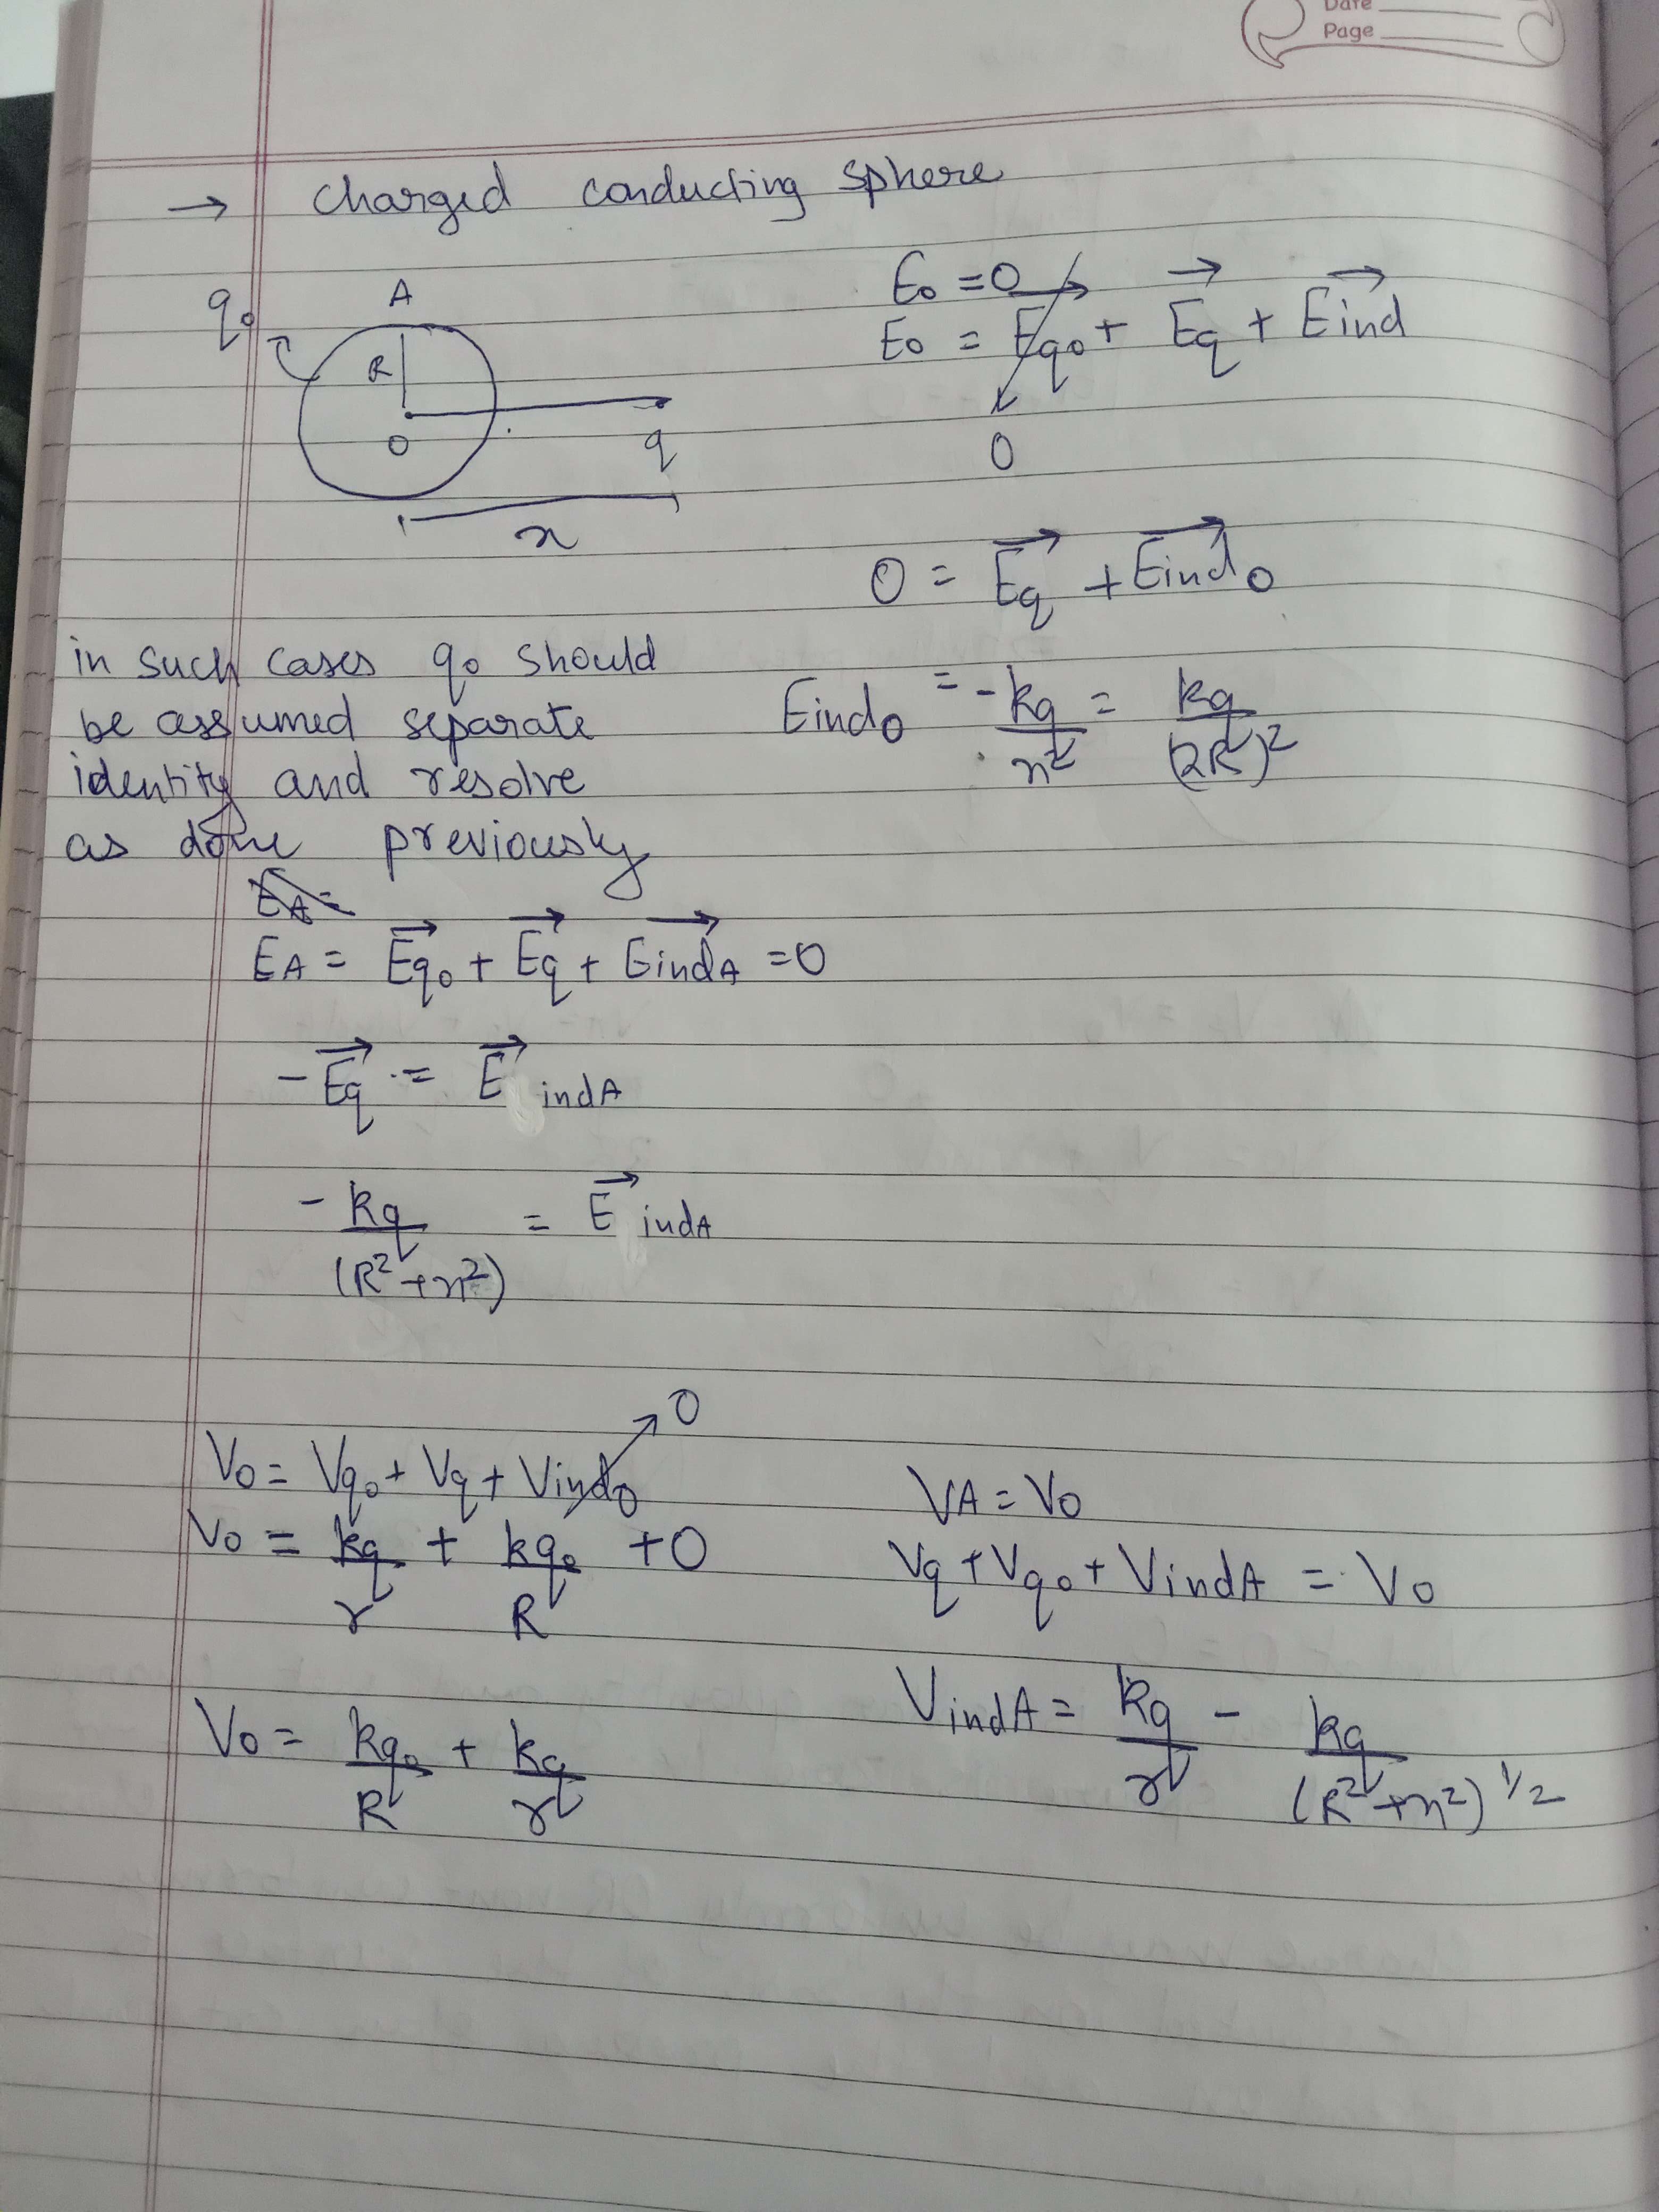 Date
Page
→ Charged conducting sphere
q₀ A
R
O q
x
E₀ = 0
E₀ = E⃗q₀ + E⃗q + E⃗ind
0
0 = E⃗q + E⃗ind₀
in such cases q₀ should
be assumed separate
identity and resolve
as done previously
Eind₀ = -kq/x² = kq/(2R)²
EA =
EA = E⃗q₀ + E⃗q + E⃗indA = 0
-E⃗q = E⃗indA
-kq/(R²+x²) = E⃗indA
0
V₀ = Vq₀ + Vq + Vind₀
V₀ = kq/r + kq₀/R + 0
V₀ = kq₀/R + kq/r
VA = V₀
Vq + Vq₀ + VindA = V₀
VindA = kq/r - kq/(R²+x²)^1/2